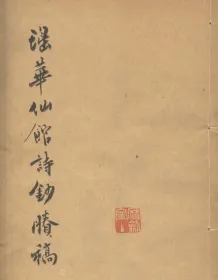 瑶華仙館詩鈔賸稿